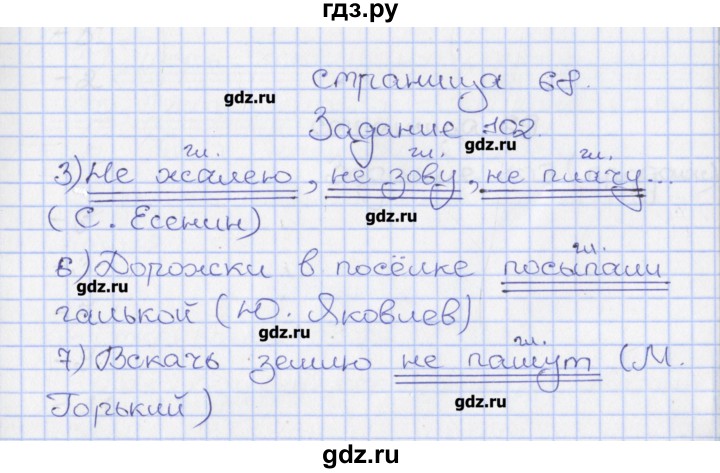 гдз.ру
страница 68.
gdz.ru
Задание 102.
gdz.ru
гл. гл. гл.
3) Не жалею, не зову, не плачу...
gdz.ru
(С. Есенин)
гл.
6) Дорожки в посёлке посыпали
gdz.ru
галькой (Ю. Яковлев)
gdz.ru
гл.
7) Вскачь землю не пашут (М.
Горький)
gdz.ru
gdz.ru